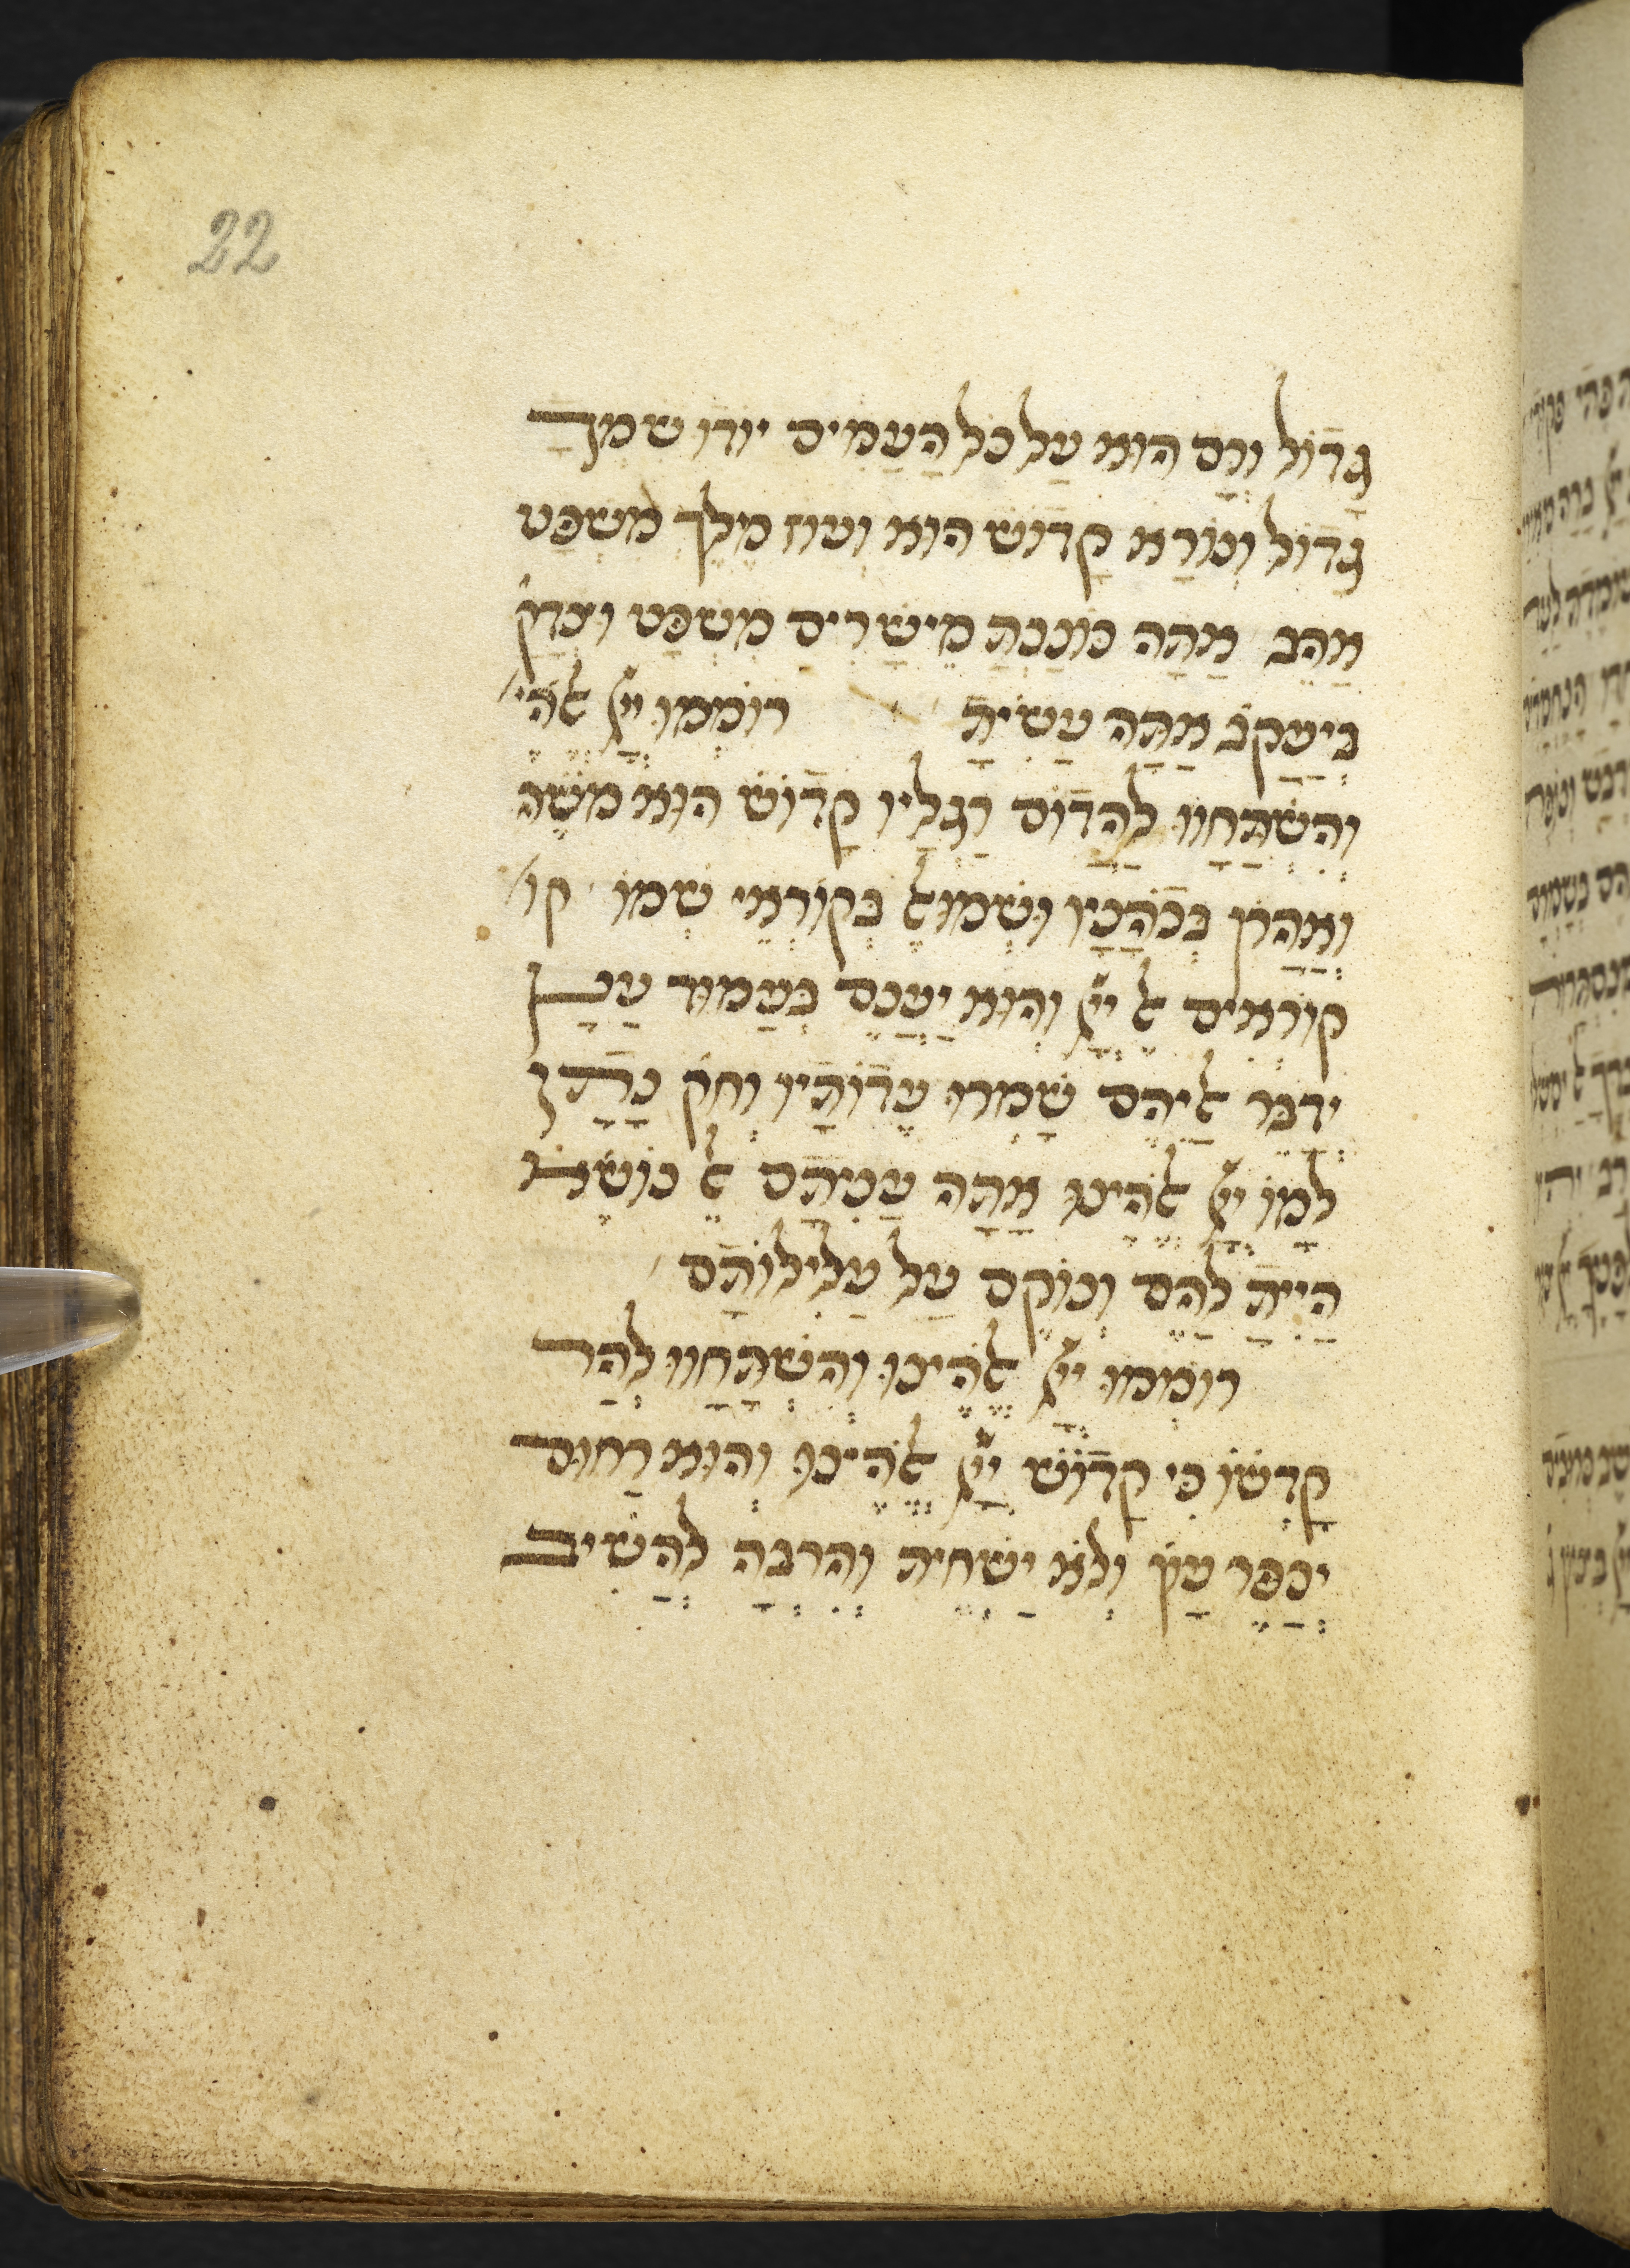 22
גָדוֹל וְרָם הוּא עַל כָּל הָעַמִים יודו שמך
גָדוֹל וְנוֹרָא קָדוֹשׁ הוא ועוז מֶלֶךְ משְׁפָּט
אַהֵב אַתָה כוֹנַנְתָ מֵישָׁרִים מִשְׁפָּט וצדק׳
בְיַעֲקֹב אַתָּה עָשִׂיתָ רוֹמְמוּ יְיָ ﭏהי׳
וְהִשְׁתַּחֲווּ לַהֲדוֹם רַגְלָיו קָדוֹשׁ הוּא מֹשֶׁה
וְאַהֲרֹן בְּכֹהֲנָיו וּשְׁמוּﭏ בְּקוֹרְאֵי שְׁמוֹ קו׳
קוֹרְאִים ﭏ יְיָ וְהוּא יַעֲנֵם בְּעַמוּד עָנָן
יְדַבֵּר ﭏיהֶם שָׁמְרוּ עֵדוֹתָיו וְחֹק נָתַן
לָמוֹ יְיָ ﭏהֵינוּ אַתָה עֲנִיתָם ﭏ נוֹשֵׂא
הָיִיתָ לָהֶם וְנוֹקֵם עַל עֲלִילוֹתָם
רוֹמְמוּ יְיָ ﭏהֵינוּ וְהִשְׁתַּחֲווּ לְהַר
קָדְשׁוֹ כִּי קָדוֹשׁ יְיָ ﭏהֵינוּ וְהוּא רַחוּם
יְכַפֵּר עָוֹן וְלֹא יַשְׁחִית וְהִרְבָּה לְהָשִׁיב